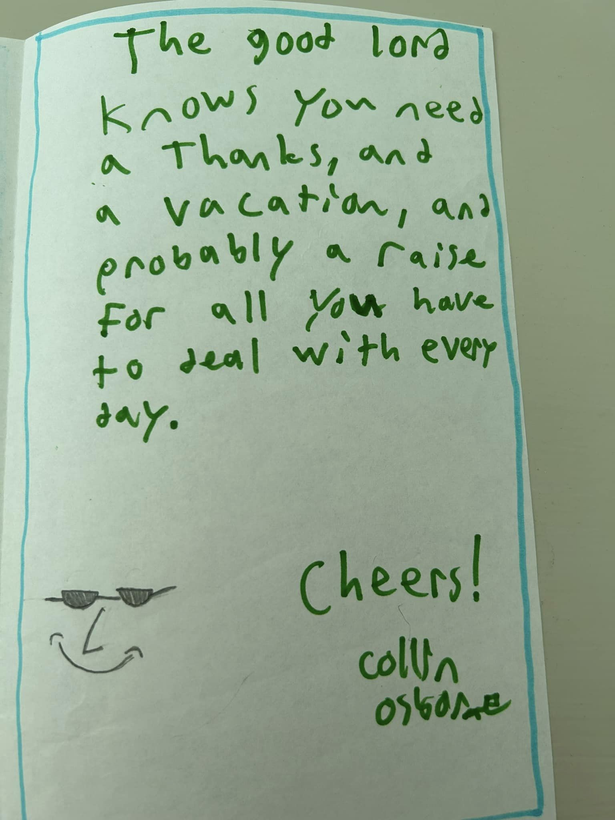 The good lord
knows you need
a thanks, and
a vacation, and
probably a raise
for all you have
to deal with every
day.
Cheers!
collin
osborne